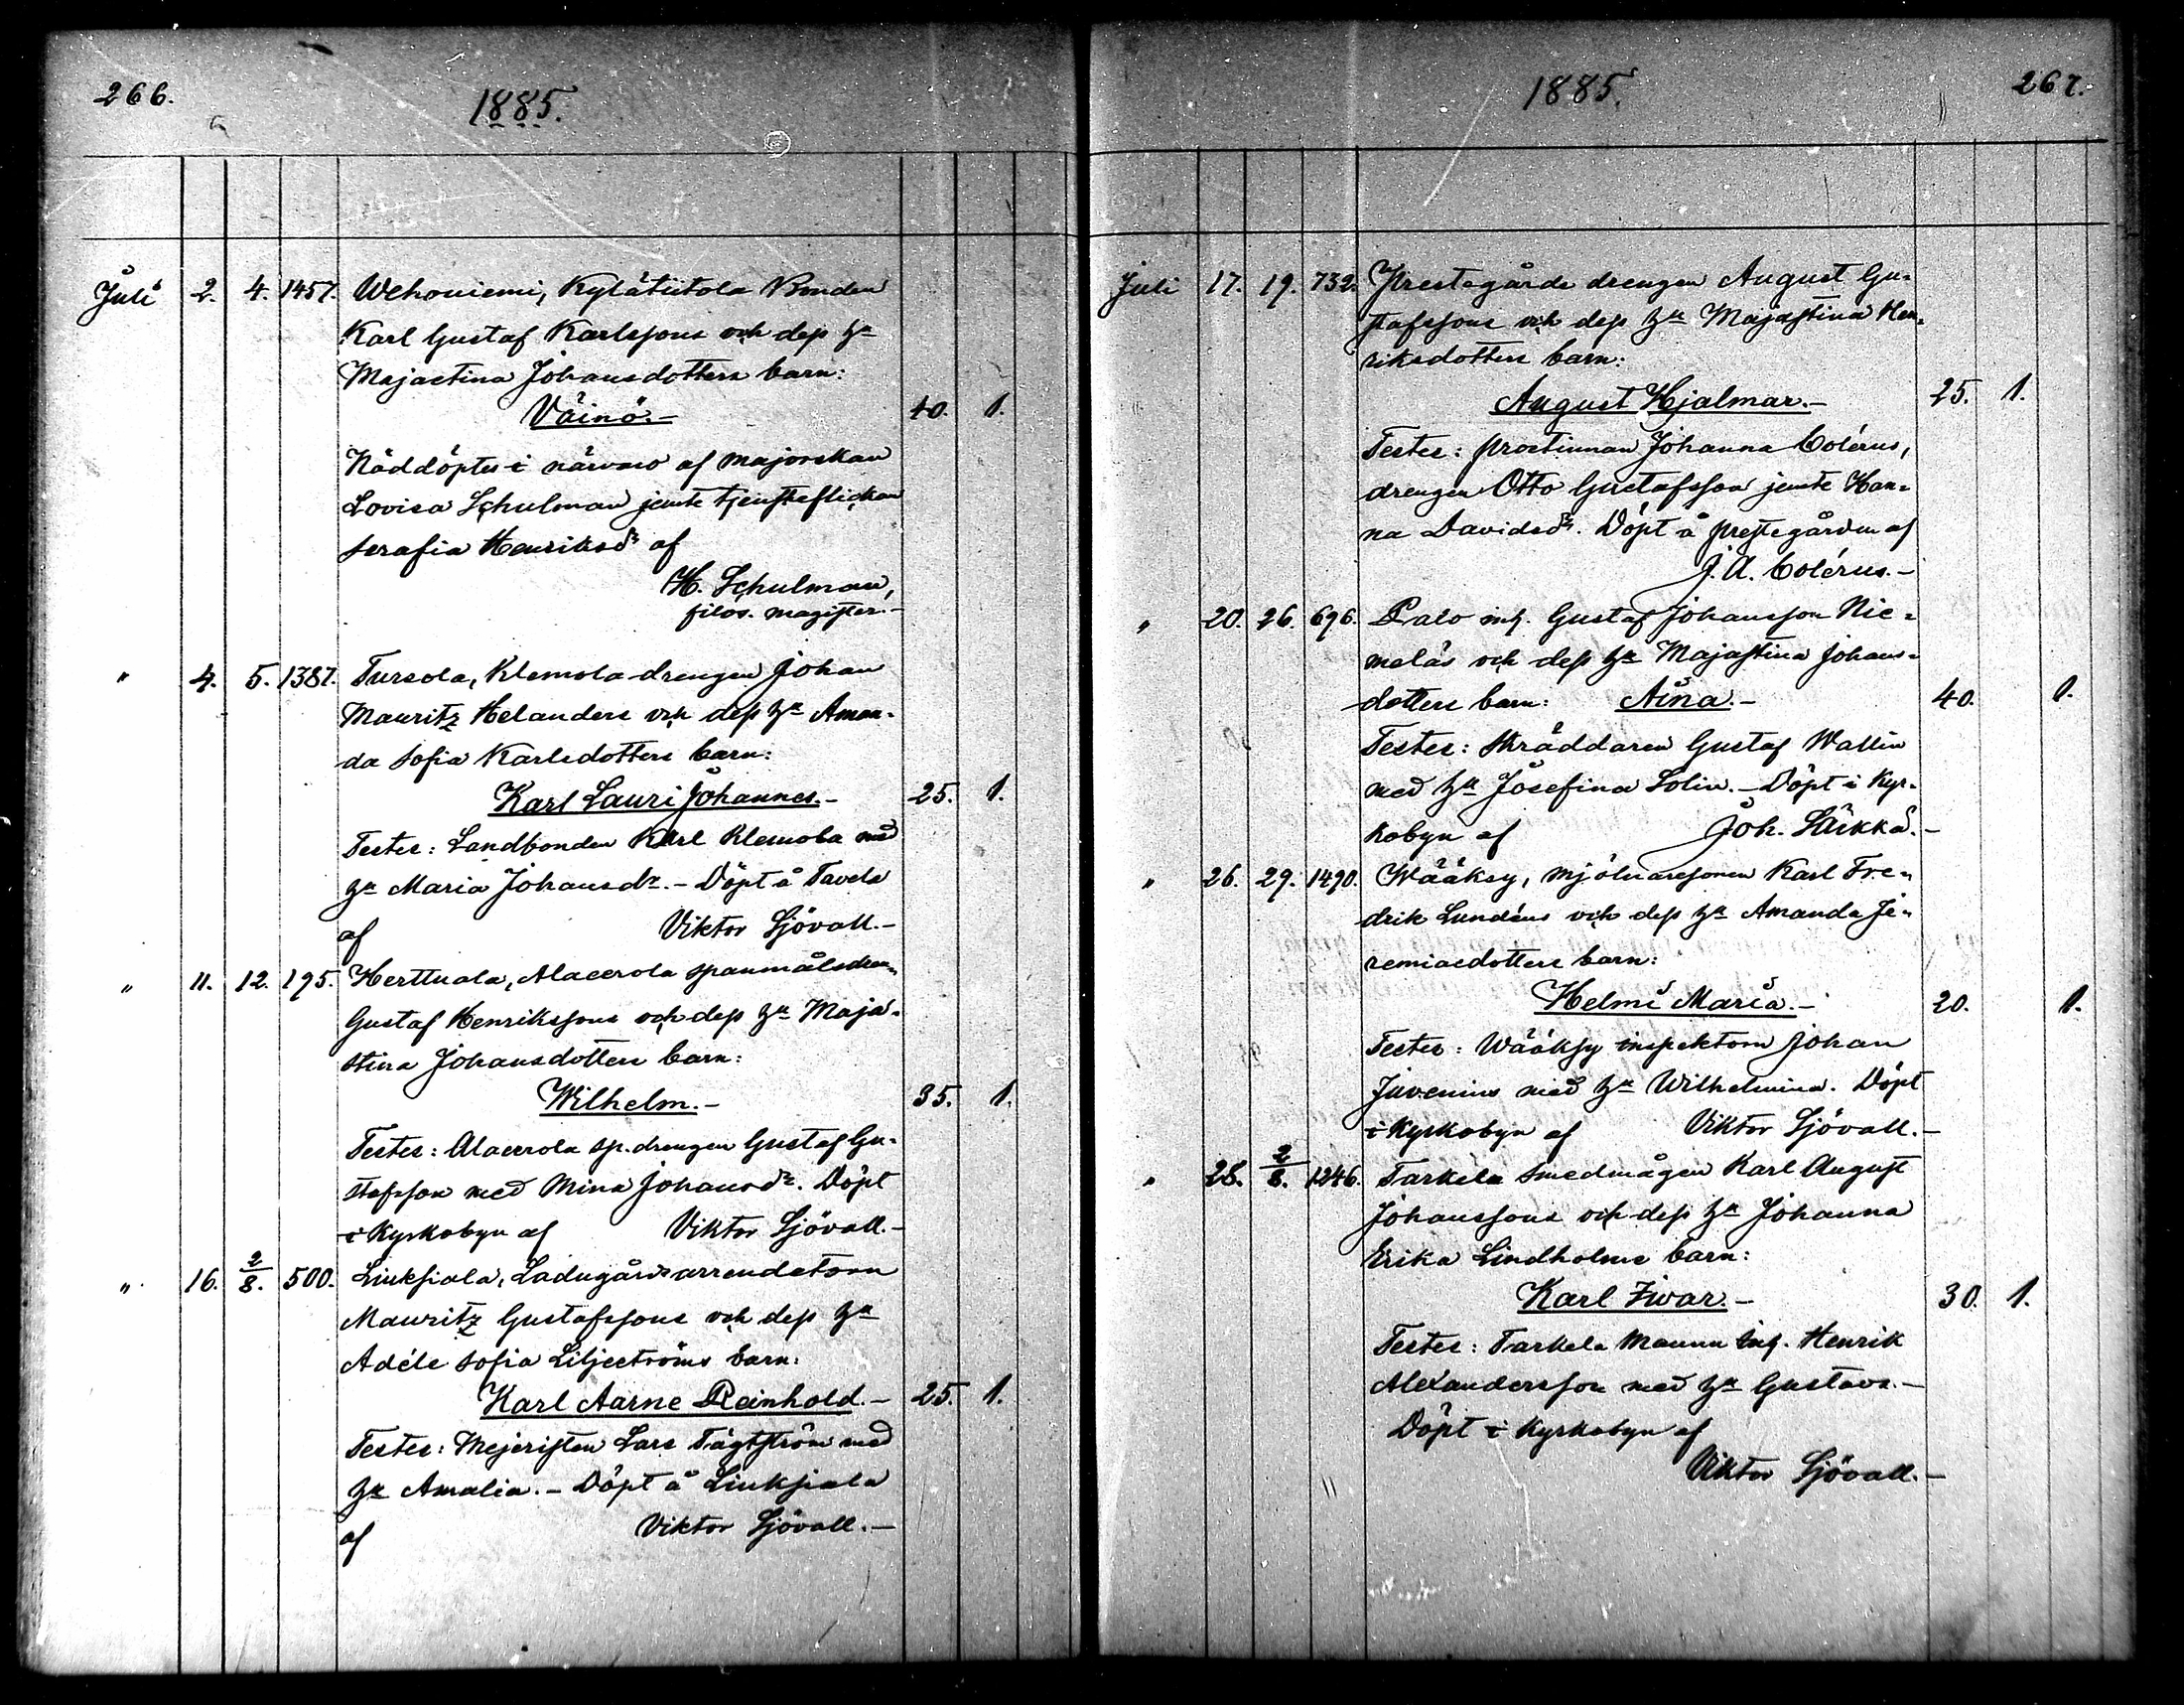 266.
1885.
Juli 2. 4. 1457. Wehoniemi, Kylätiitola Bonden
Karl Gustaf Karlssons och dess hu
Majastina Johansdotters barn:
Väinö.- 40. 1.
Nöddöptes i närvaro af majorskan
Lovisa Schulman jemte tjensteflickan
Serafia Henriksdr af
H. Schulman,
filos. magister.-
" 4. 5. 1387. Tursola, Klemola drengen Johan
Mauritz Helanders och dess hu Aman-
da Sofia Karlsdotters barn:
Karl Lauri Johannes.- 25. 1.
Testes: Landbonden Karl Klemola med
hu Maria Johansdr.- Döpt å Tavela
af Viktor Sjövall.-
" 11. 12. 195. Herttuala, Alaerola spanmålsdren-
Gustaf Henrikssons och dess hu Maja-
stina Johansdotters barn:
Wilhelm.- 35. 1.
Testes: Alaerola sp.drengen Gustaf Gu-
stafsson med Mina Johansdr. Döpt
i Kyrkobyn af Viktor Sjövall.-
" 16. 2/8. 500. Liuksiala, Ladugårdsarrendatorn
Mauritz Gustafssons och dess hu
Adéle Sofia Liljeströms barn:
Karl Aarne Reinhold.- 25. 1.
Testes: Mejeristen Lars Tägtström med
hu Amalia.- Döpt å Liuksiala
af Viktor Sjövall.-
1885.
267.
Juli 17. 19. 732. Prestagårds drengen August Gu-
stafssons och dess hu Majastina Hen-
riksdotters barn:
August Hjalmar.- 25. 1.
Testes: prostinnan Johanna Colérus,
drengen Otto Gustafsson jemte Han-
na Davidsdr. Döpt å prestegården af
J. A. Colérus.-
" 20. 26. 696. Palo inh. Gustaf Johansson Nie-
meläs och dess hu Majastina Johans-
dotters barn: Aina.- 40. 1.
Testes: Skräddaren Gustaf Wallin
med hu Josefina Solin.- Döpt i Kyr-
kobyn af Joh. Särkkä.-
" 26. 29. 1490. Wääksy, mjölnaresonen Karl Fre-
drik Lundéns och dess hu Amanda Je-
remiaedotters barn:
Helmi Maria.- 20. 1.
Testes: Wääksy inspektorn Johan
Juvenius med hu Wilhelmina. Döpt
i Kyrkobyn af Viktor Sjövall.-
" 28. 2/8. 1246. Tarkela Smedmågen Karl August
Johanssons och dess hu Johanna
Erika Lindholms barn:
Karl Ivar.- 30. 1.
Testes: Tarkela Maunu inh. Henrik
Alexandersson med hu Gustava.-
Döpt i Kyrkobyn af
Viktor Sjövall.-